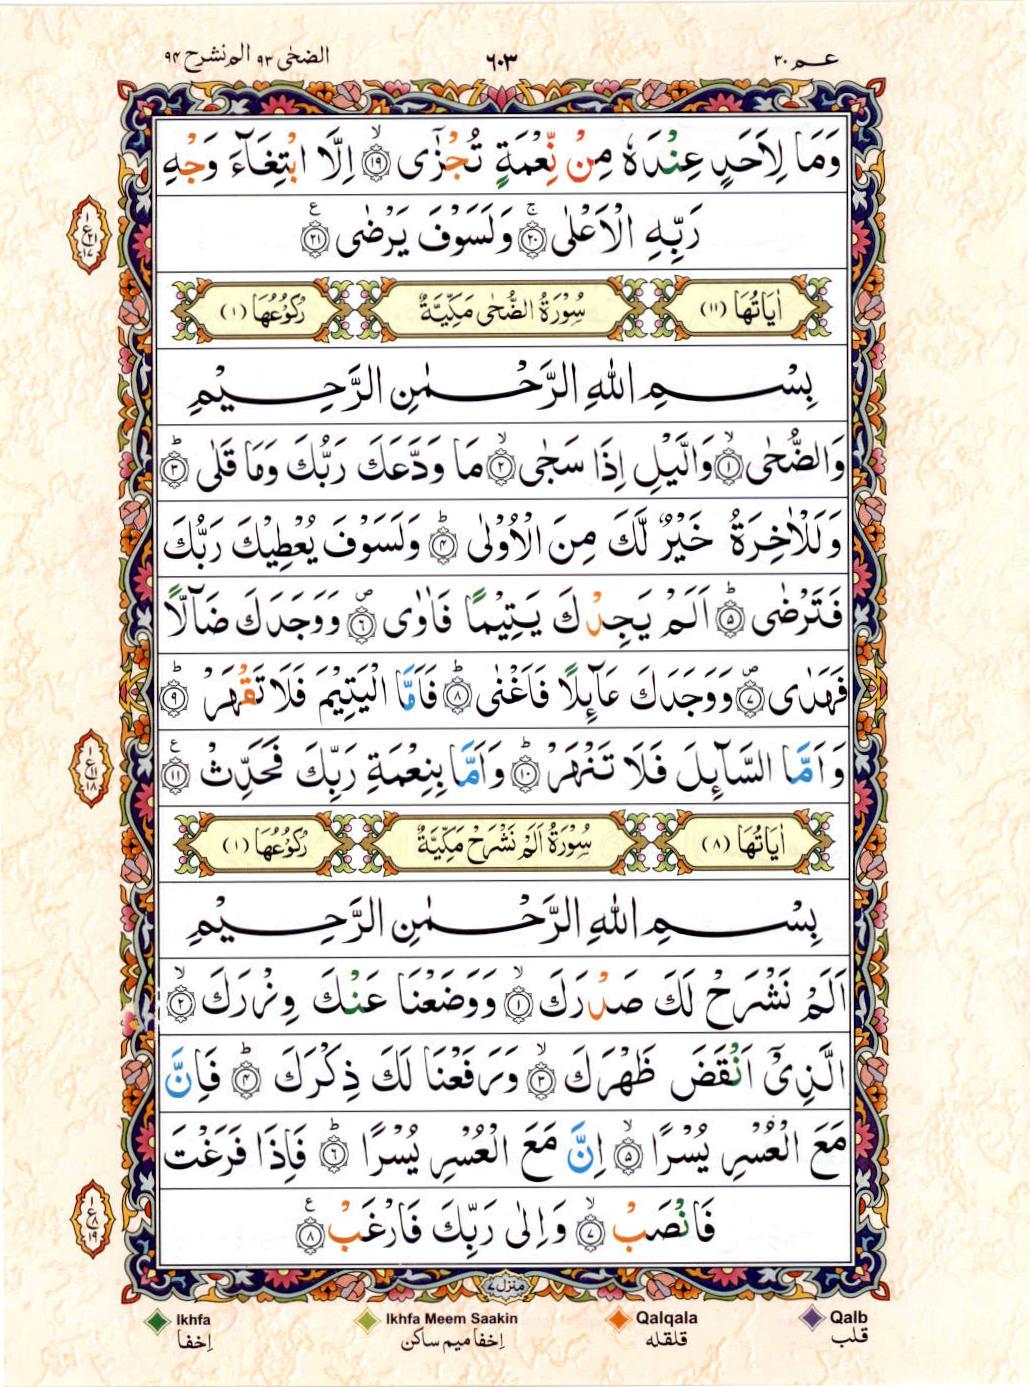 عـم ٣٠
٦٠٣
الضحٰی ٩٣ الم نشرح ٩۴
وَمَا لِاَحَدٍ عِنْدَهٗ مِنْ نِّعْمَةٍ تُجْزٰٓى ۙ﴿١٩﴾ اِلَّا ابْتِغَآءَ وَجْهِ
رَبِّهِ الْاَعْلٰى ۚ﴿٢٠﴾ وَلَسَوْفَ يَرْضٰى ﴿٢١﴾ ع
١
ع ٢١
١٧
اٰيَاتُهَا (١١) سُوْرَةُ الضُّحٰى مَكِّيَّةٌ رُكُوْعُهَا (١)
بِسْمِ اللّٰهِ الرَّحْمٰنِ الرَّحِيْمِ
وَالضُّحٰى ۙ﴿١﴾ وَالَّيْلِ اِذَا سَجٰى ۙ﴿٢﴾ مَا وَدَّعَكَ رَبُّكَ وَمَا قَلٰى ؕ﴿٣﴾
وَلَلْاٰخِرَةُ خَيْرٌ لَّكَ مِنَ الْاُوْلٰى ؕ﴿۴﴾ وَلَسَوْفَ يُعْطِيْكَ رَبُّكَ
فَتَرْضٰى ؕ﴿۵﴾ اَلَمْ يَجِدْكَ يَتِيْمًا فَاٰوٰى ۪﴿٦﴾ وَوَجَدَكَ ضَآلًّا
فَهَدٰى ۪﴿٧﴾ وَوَجَدَكَ عَآئِلًا فَاَغْنٰى ؕ﴿٨﴾ فَاَمَّا الْيَتِيْمَ فَلَا تَقْهَرْ ؕ﴿٩﴾
وَاَمَّا السَّآئِلَ فَلَا تَنْهَرْ ؕ﴿١٠﴾ وَاَمَّا بِنِعْمَةِ رَبِّكَ فَحَدِّثْ ﴿١١﴾ ع
١
ع ١١
١٨
اٰيَاتُهَا (٨) سُوْرَةُ اَلَمْ نَشْرَحْ مَكِّيَّةٌ رُكُوْعُهَا (١)
بِسْمِ اللّٰهِ الرَّحْمٰنِ الرَّحِيْمِ
اَلَمْ نَشْرَحْ لَكَ صَدْرَكَ ۙ﴿١﴾ وَوَضَعْنَا عَنْكَ وِزْرَكَ ۙ﴿٢﴾
الَّذِيْۤ اَنْقَضَ ظَهْرَكَ ۙ﴿٣﴾ وَرَفَعْنَا لَكَ ذِكْرَكَ ؕ﴿۴﴾ فَاِنَّ
مَعَ الْعُسْرِ يُسْرًا ۙ﴿۵﴾ اِنَّ مَعَ الْعُسْرِ يُسْرًا ؕ﴿٦﴾ فَاِذَا فَرَغْتَ
فَانْصَبْ ۙ﴿٧﴾ وَاِلٰى رَبِّكَ فَارْغَبْ ﴿٨﴾ ع
١
ع ٨
١٩
منزل ٧
Ikhfa Ikhfa Meem Saakin Qalqala Qalb
اِخفا اِخفا میم ساکن قلقله قلب